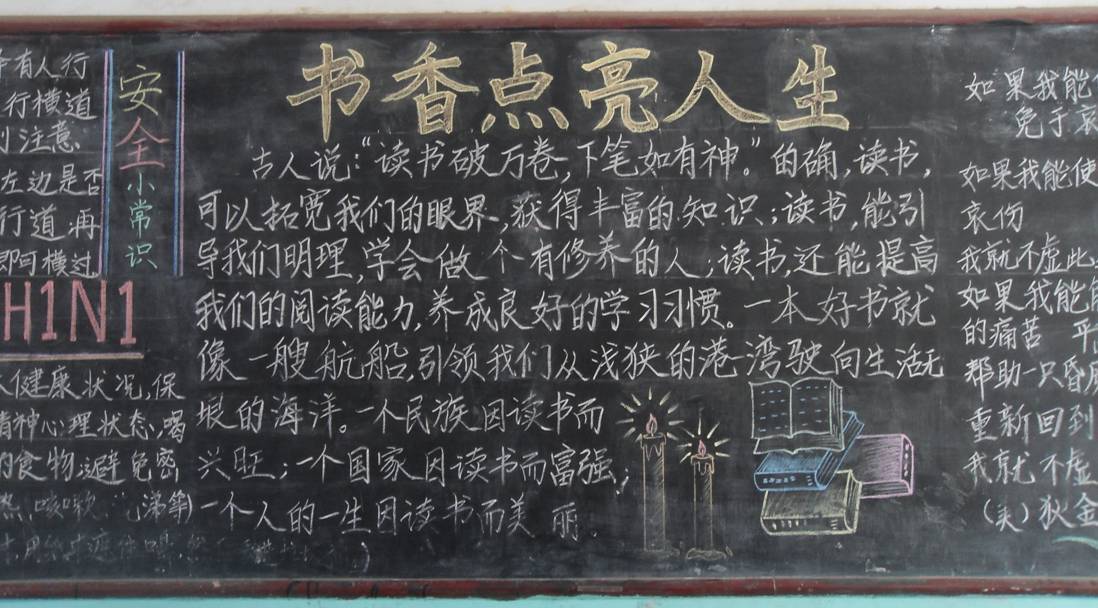 有人行
行横道
注意
左边是否
行道,再
即可横过
安全小常识
H1N1
健康状况,保
精神心理状态,喝
的食物,避免密
咳嗽
书香点亮人生
古人说:“读书破万卷,下笔如有神。”的确,读书,
可以拓宽我们的眼界,获得丰富的知识;读书,能引
导我们明理,学会做 个有修养的人;读书,还能提高
我们的阅读能力,养成良好的学习习惯。一本好书就
像一艘航船,引领我们从浅狭的港湾驶向生活无
垠的海洋。一个民族因读书而
兴旺;一个国家因读书而富强;
一个人的一生因读书而美丽。
如果我能
免于哀
如果我能使
哀伤
我就不虚此
如果我能
的痛苦 平
帮助一只昏
重新回到
我就不虚
(美)狄金